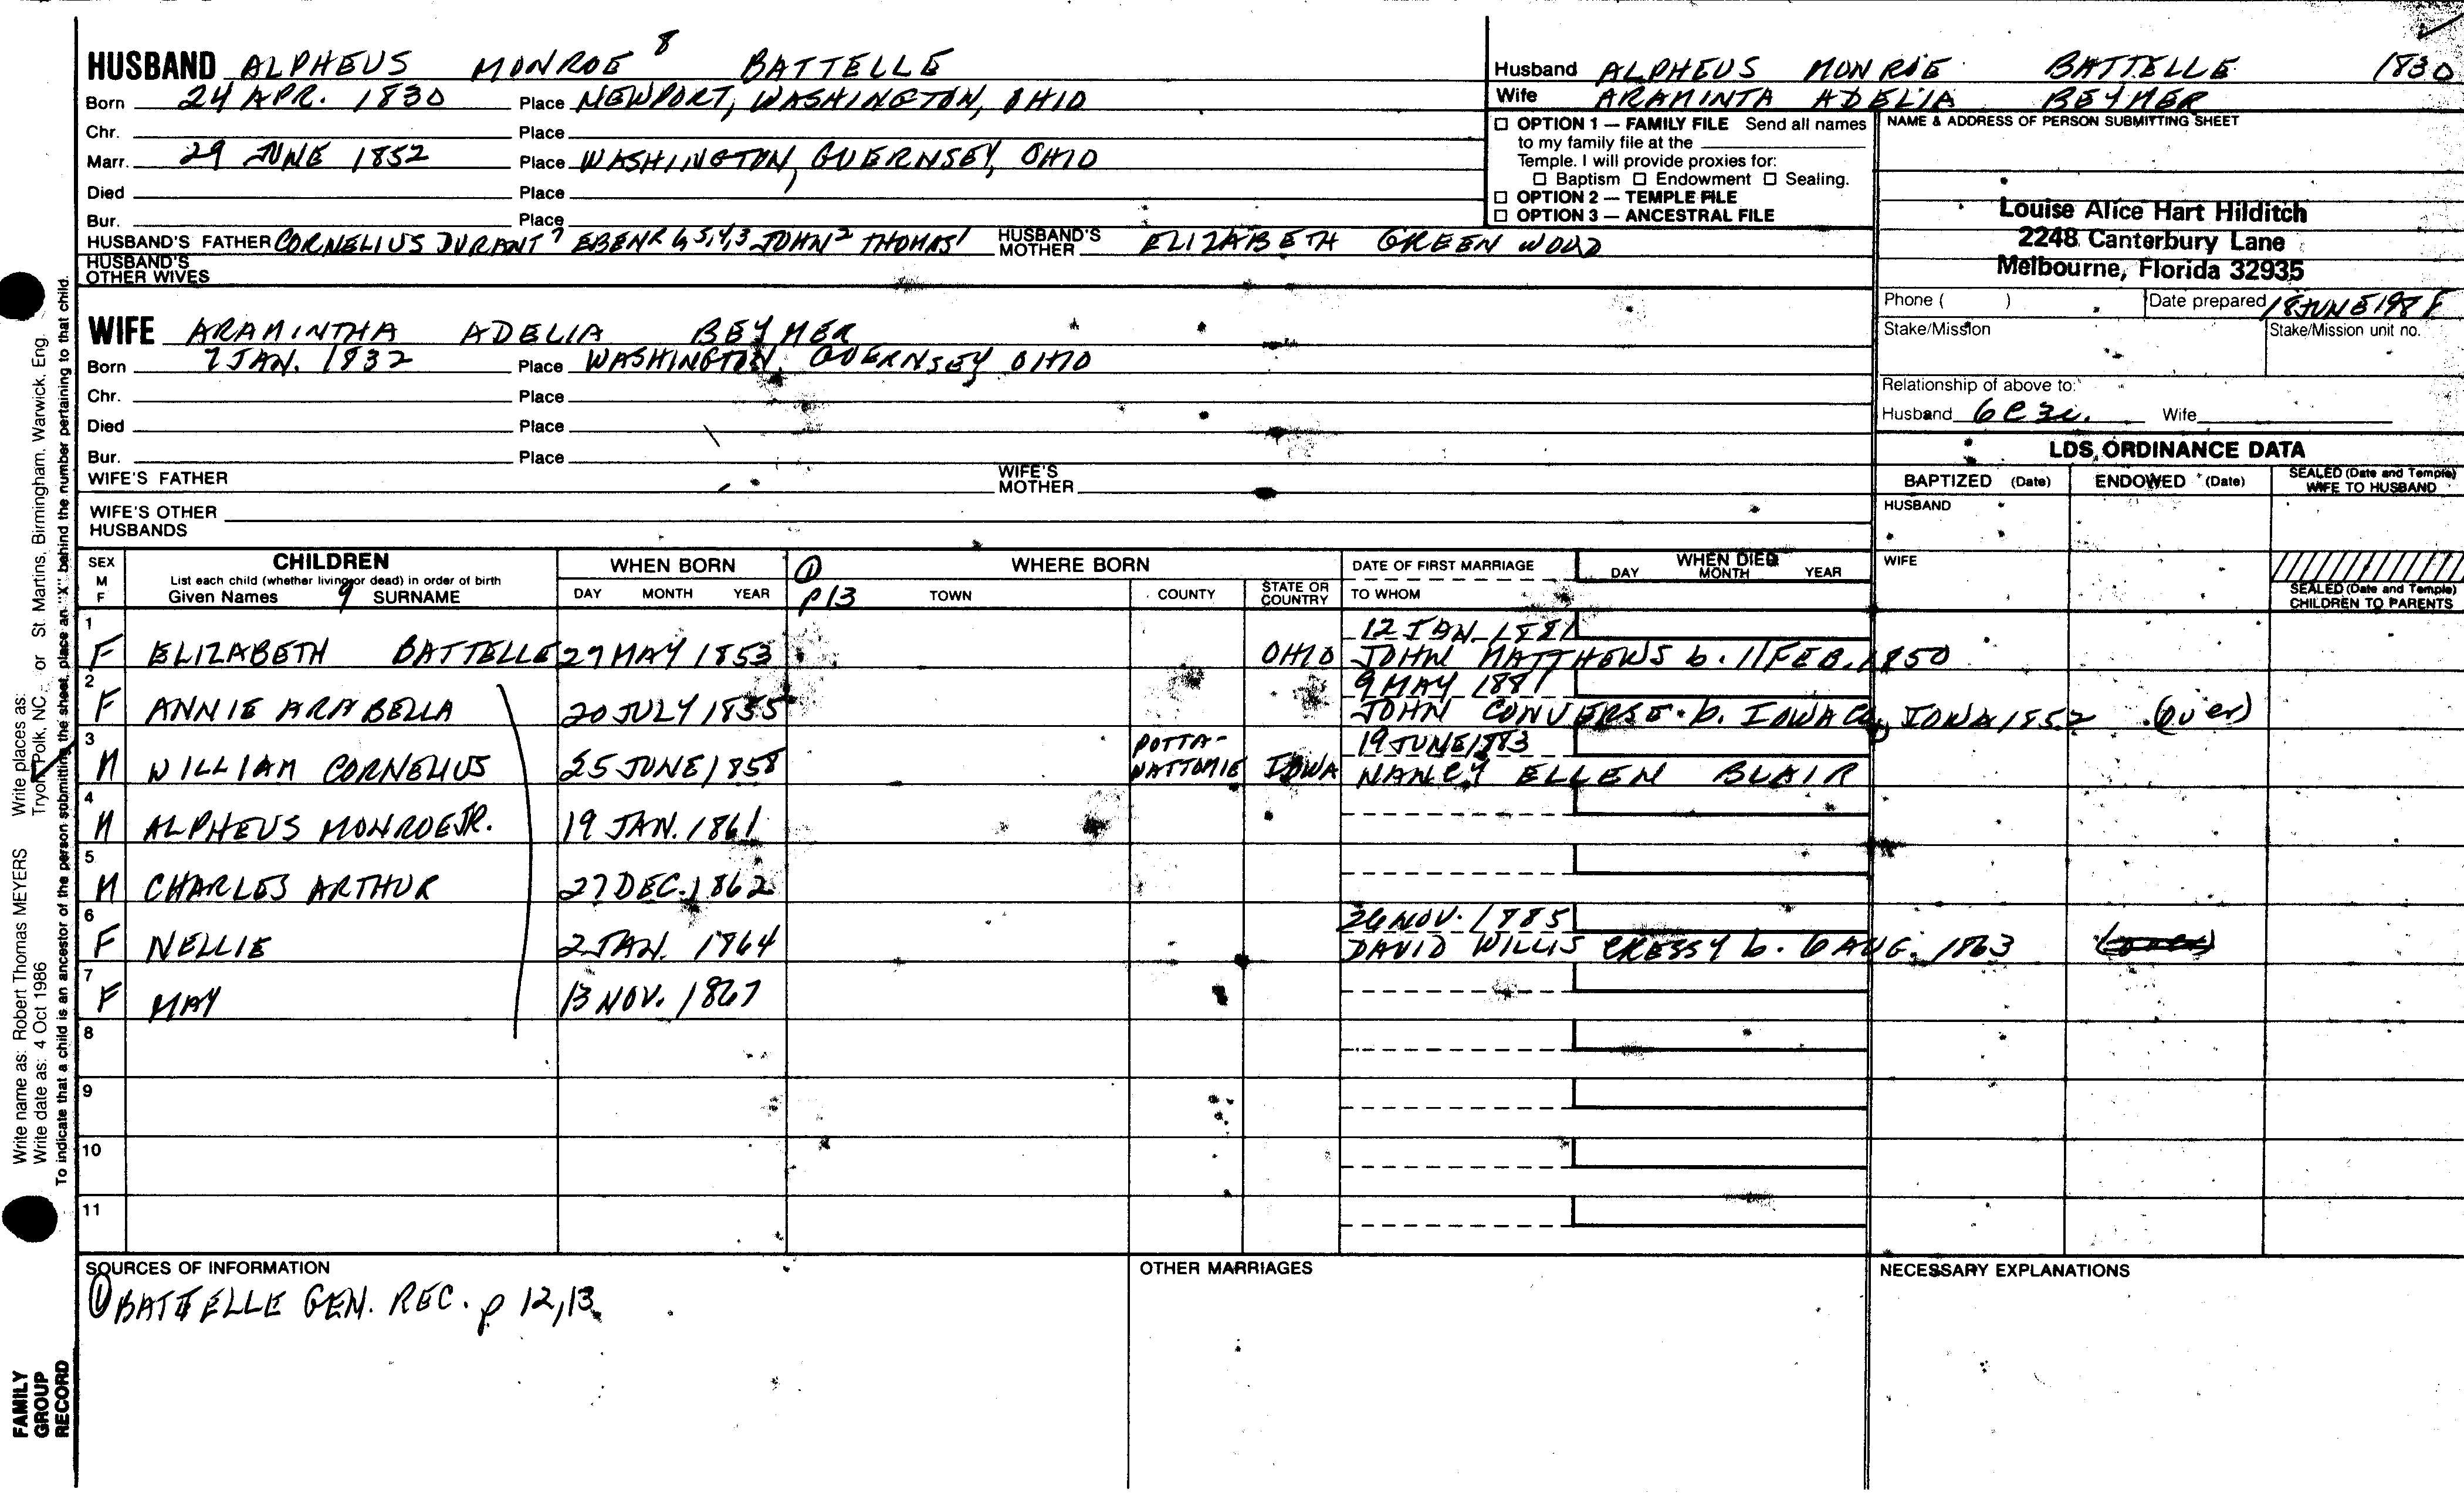 HUSBAND ALPHEUS MONROE 8 BATTELLE
Born 24 APR. 1830 Place NEWPORT, WASHINGTON, OHIO
Chr. Place
Marr. 29 JUNE 1852 Place WASHINGTON, GUERNSEY, OHIO
Died Place
Bur. Place
HUSBAND'S FATHER CORNELIUS DURANT 7 EBENR 6,5,4,3 JOHN 2 THOMAS 1 HUSBAND'S MOTHER ELIZABETH GREENWOOD
HUSBAND'S OTHER WIVES
WIFE ARAMINTHA ADELIA BEYMER
Born 7 JAN. 1832 Place WASHINGTON, GUERNSEY OHIO
Chr. Place
Died Place
Bur. Place
WIFE'S FATHER WIFE'S MOTHER
WIFE'S OTHER HUSBANDS
Husband ALPHEUS MONROE BATTELLE 1830
Wife ARAMINTA ADELIA BEYMER
☐ OPTION 1 — FAMILY FILE Send all names
to my family file at the
Temple. I will provide proxies for:
☐ Baptism ☐ Endowment ☐ Sealing.
☐ OPTION 2 — TEMPLE FILE
☐ OPTION 3 — ANCESTRAL FILE
NAME & ADDRESS OF PERSON SUBMITTING SHEET
Louise Alice Hart Hilditch
2248 Canterbury Lane
Melbourne, Florida 32935
Phone ( ) Date prepared 18 JUNE
Stake/Mission Stake/Mission unit no.
Relationship of above to:
Husband 6C3 Wife
LDS ORDINANCE DATA
BAPTIZED (Date) ENDOWED (Date) SEALED (Date and Temple) WIFE TO HUSBAND
HUSBAND
WIFE
SEALED (Date and Temple) CHILDREN TO PARENTS
SEX M F CHILDREN WHEN BORN ① WHERE BORN DATE OF FIRST MARRIAGE WHEN DIED
List each child (whether living or dead) in order of birth DAY MONTH YEAR
Given Names 9 SURNAME DAY MONTH YEAR p13 TOWN COUNTY STATE OR COUNTRY TO WHOM
1 12 JAN. 1881
F ELIZABETH BATTELLE 29 MAY 1853 OHIO JOHN MATTHEWS b. 11 FEB. 1850
2 9 MAY 1881
F ANNIE ARABELLA 20 JULY 1855 JOHN CONVERSE b. IOWA CO, IOWA 1852 (over)
3 POTTA- 19 JUNE 1883
M WILLIAM CORNELIUS 25 JUNE 1858 WATTOMIE IOWA NANCY ELLEN BLAIR
4
M ALPHEUS MONROE JR. 19 JAN. 1861
5
M CHARLES ARTHUR 27 DEC. 1862
6 26 NOV. 1885
F NELLIE 2 JAN. 1864 DAVID WILLIS CRESSY b. 6 AUG. 1863
7
F MAY 13 NOV. 1867
8
9
10
11
SOURCES OF INFORMATION OTHER MARRIAGES NECESSARY EXPLANATIONS
① BATTELLE GEN. REC. p 12,13
Write name as: Robert Thomas MEYERS Write places as:
Write date as: 4 Oct 1986 Tryon, Polk, NC or St. Martins, Birmingham, Warwick, Eng.
To indicate that a child is an ancestor of the person submitting the sheet, place an "X" behind the number pertaining to that child.
FAMILY
GROUP
RECORD